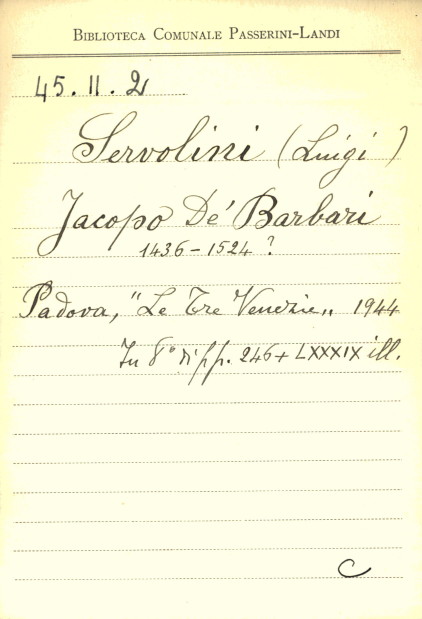 BIBLIOTECA COMUNALE PASSERINI-LANDI
45.II.2
Servolini (Luigi)
Jacopo De' Barbari
1436-1524?
Padova, "Le Tre Venezie„ 1944
In 8° di pp. 246 + LXXXIX ill.
C